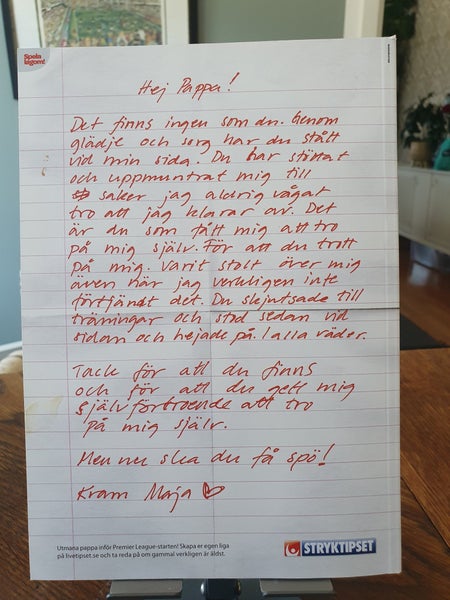 Spela
lagom!
Hej Pappa!
Det finns ingen som du. Genom
glädje och sorg har du stått
vid min sida. Du har stöttat
och uppmuntrat mig till
saker jag aldrig vågat
tro att jag klarar av. Det
är du som fått mig att tro
på mig själv. För att du trott
på mig. Varit stolt över mig
även när jag verkligen inte
förtjänat det. Du skjutsade till
träningar och stod sedan vid
sidan och hejade på. I alla väder.
Tack för att du finns
och för att du gett mig
självförtroende att tro
på mig själv.
Men nu ska du få spö!
Kram Maja
Utmana pappa inför Premier League-starten! Skapa er egen liga
på livetipset.se och ta reda på om gammal verkligen är äldst.
STRYKTIPSET